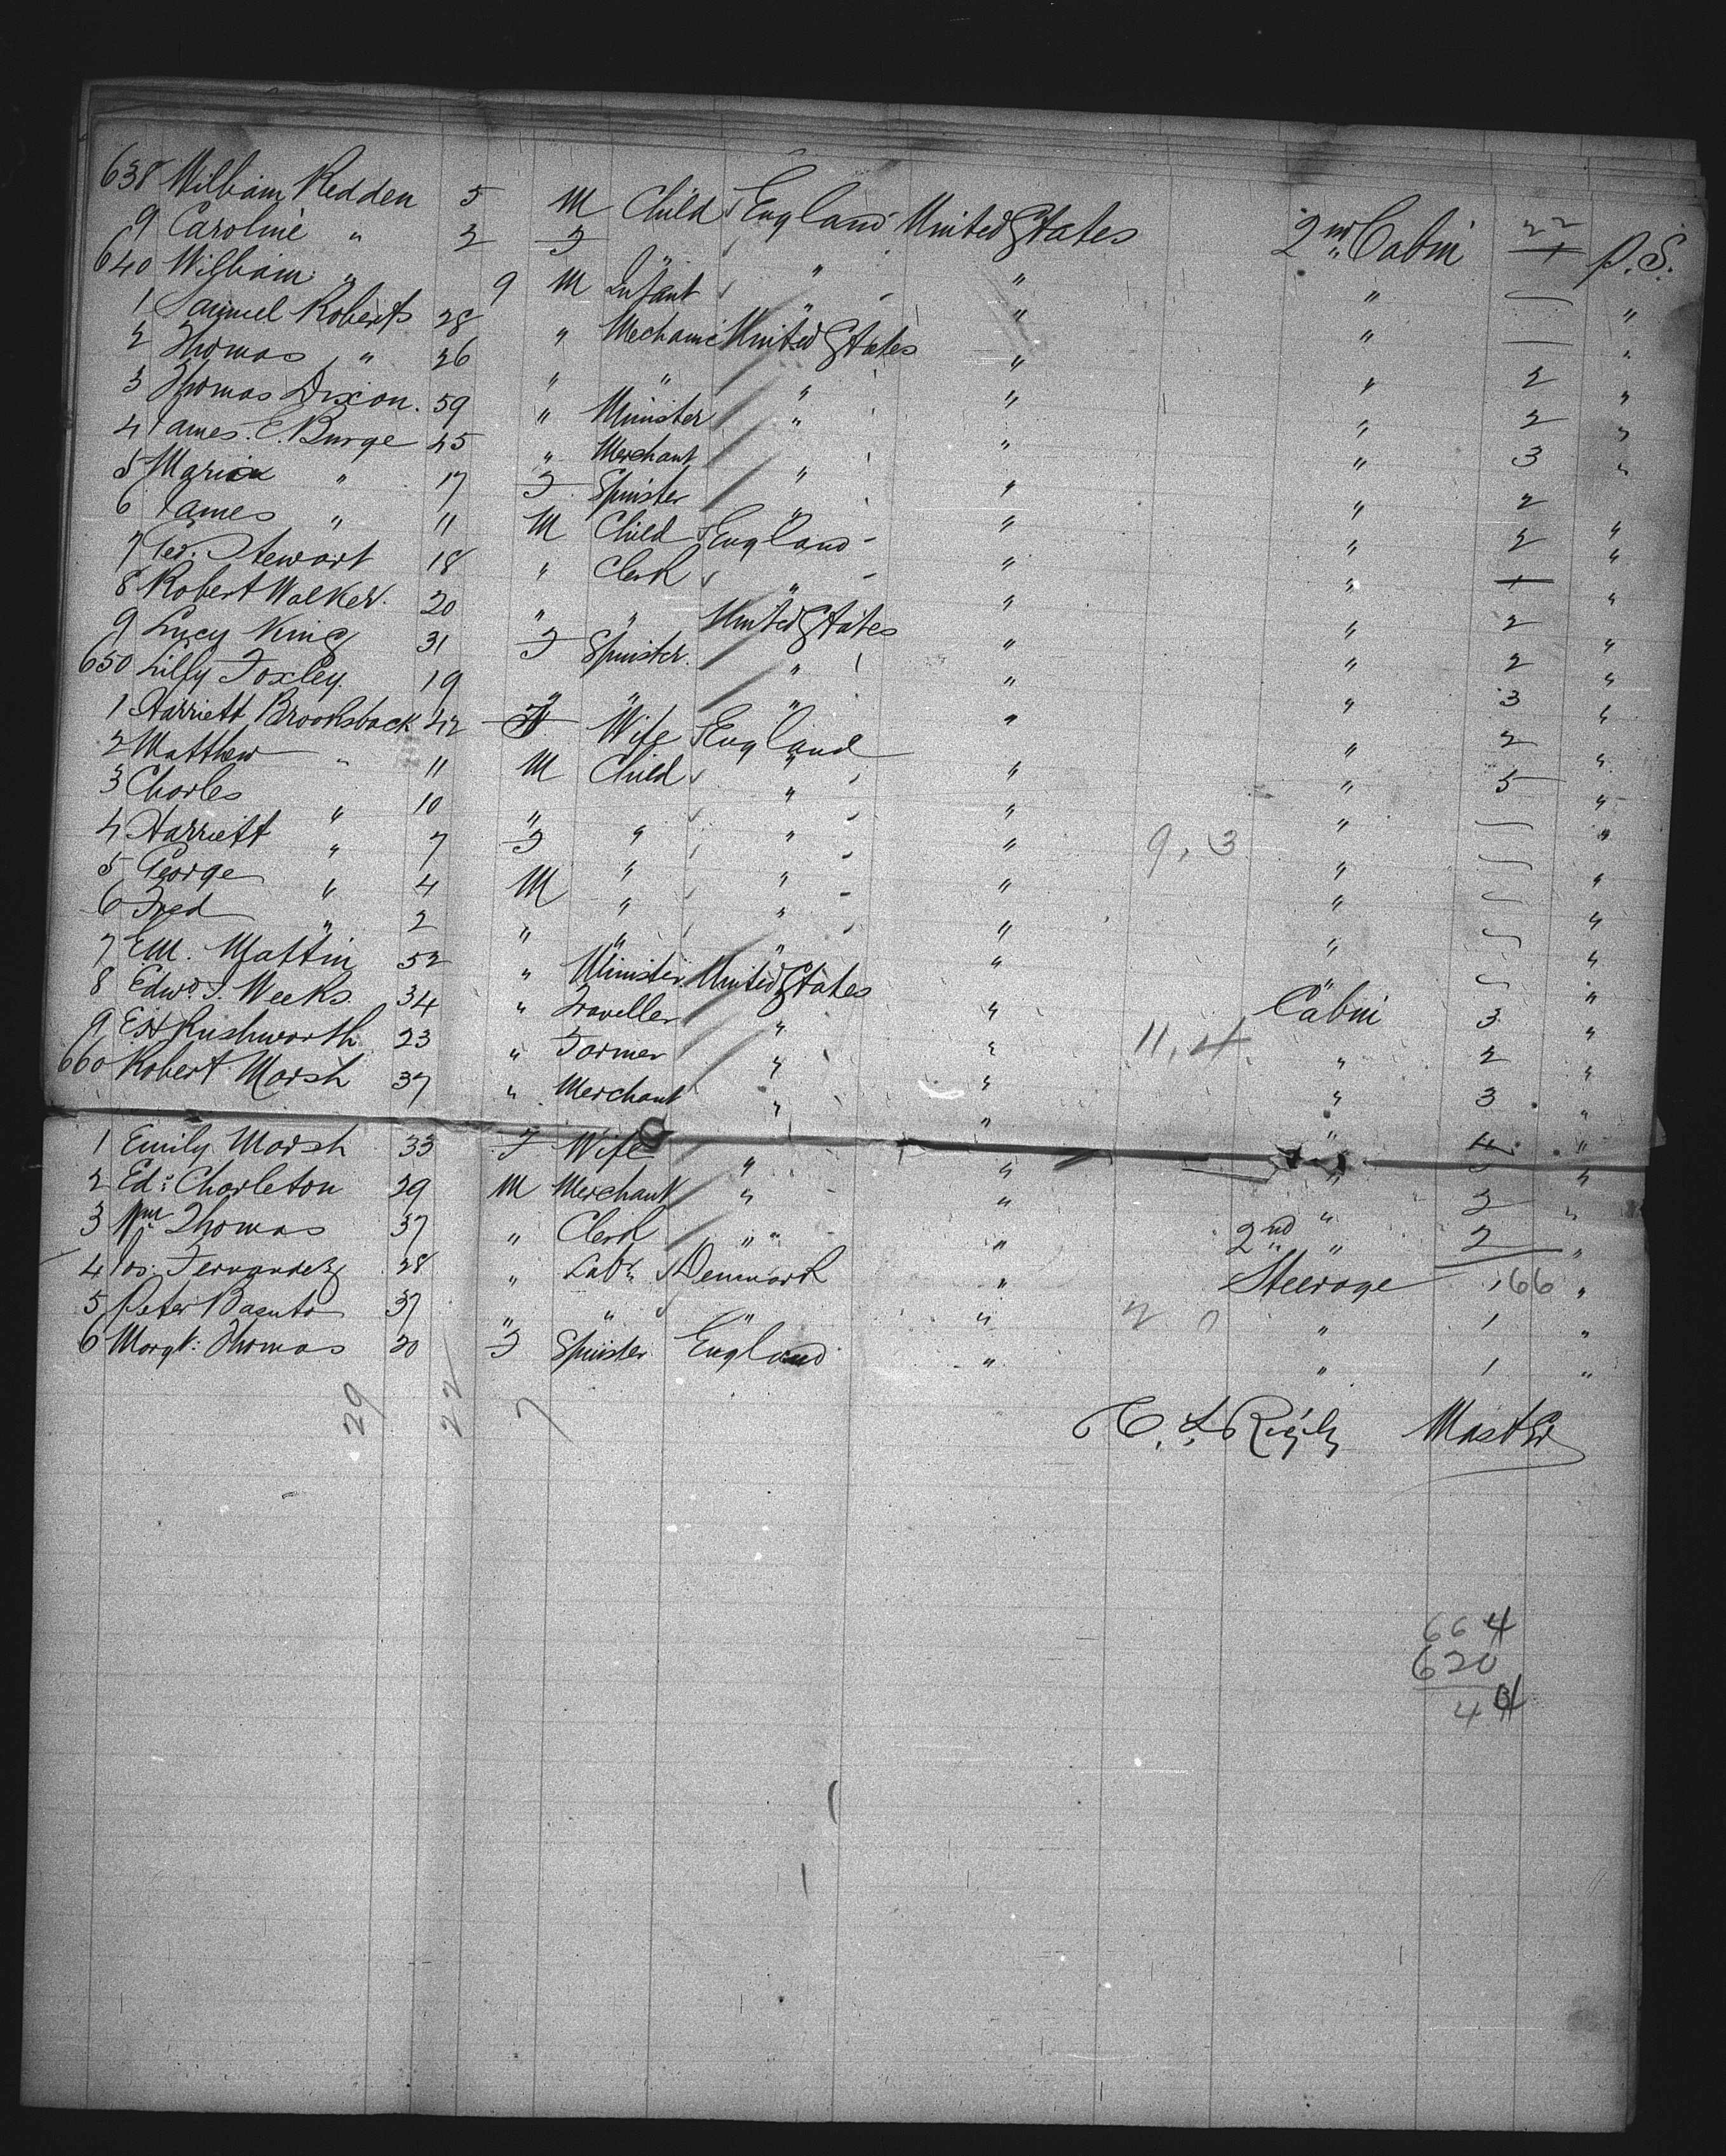 638 William Redden 5 M Child England United States 2nd Cabin 22 1 P.S.
9 Caroline " 2 F " " " " — "
640 William " 9 M Infant " " " — "
1 Samuel Roberts 28 " Mechanic United States " " 2 "
2 Thomas " 26 " " " " " 2 "
3 Thomas Dixon. 59 " Minister " " " 3 "
4 James. E. Burge 45 " Merchant " " " 2 "
5 Maria " 17 F Spinster " " " 2 "
6 James " 11 M Child England " " 1 "
7 Geo. Stewart 18 " Clerk " " " 2 "
8 Robert Walker. 20 " " United States " " 2 "
9 Lucy King 31 F Spinster. " " " 3 "
650 Lilly Foxley. 19 " " " " " 2 "
1 Harriett Brooksback 42 Wife England " " 5 "
2 Matthew " 11 M Child " " " — "
3 Charles " 10 " " " " " — "
4 Harriett " 7 F " " " 9, 3 " — "
5 George " 4 M " " " " — "
6 Fred " 2 " " " " " — "
7 E.M. Maftin 52 " Minister. United States " Cabin 3 "
8 Edwd. J. Weeks. 34 " Traveller " " " 2 "
9 E.H Rushworth. 23 " Farmer " " 11, 4 " 3 "
660 Robert Marsh 37 " Merchant " " " 4 "
1 Emily Marsh 33 F Wife " " " "
2 Ed: Charleton 29 M Merchant " " " 2 "
3 Wm Thomas 37 " Clerk " " 2nd " 2 "
4 Jos. Fernandez 28 " Labr. Denmark " Steerage 1 66 "
5 Peter Basuto 37 " " " " 2 0 " 1 "
6 Margt: Thomas 20 F Spinster England " " 1 "
29 22 7
Master
664
620
44